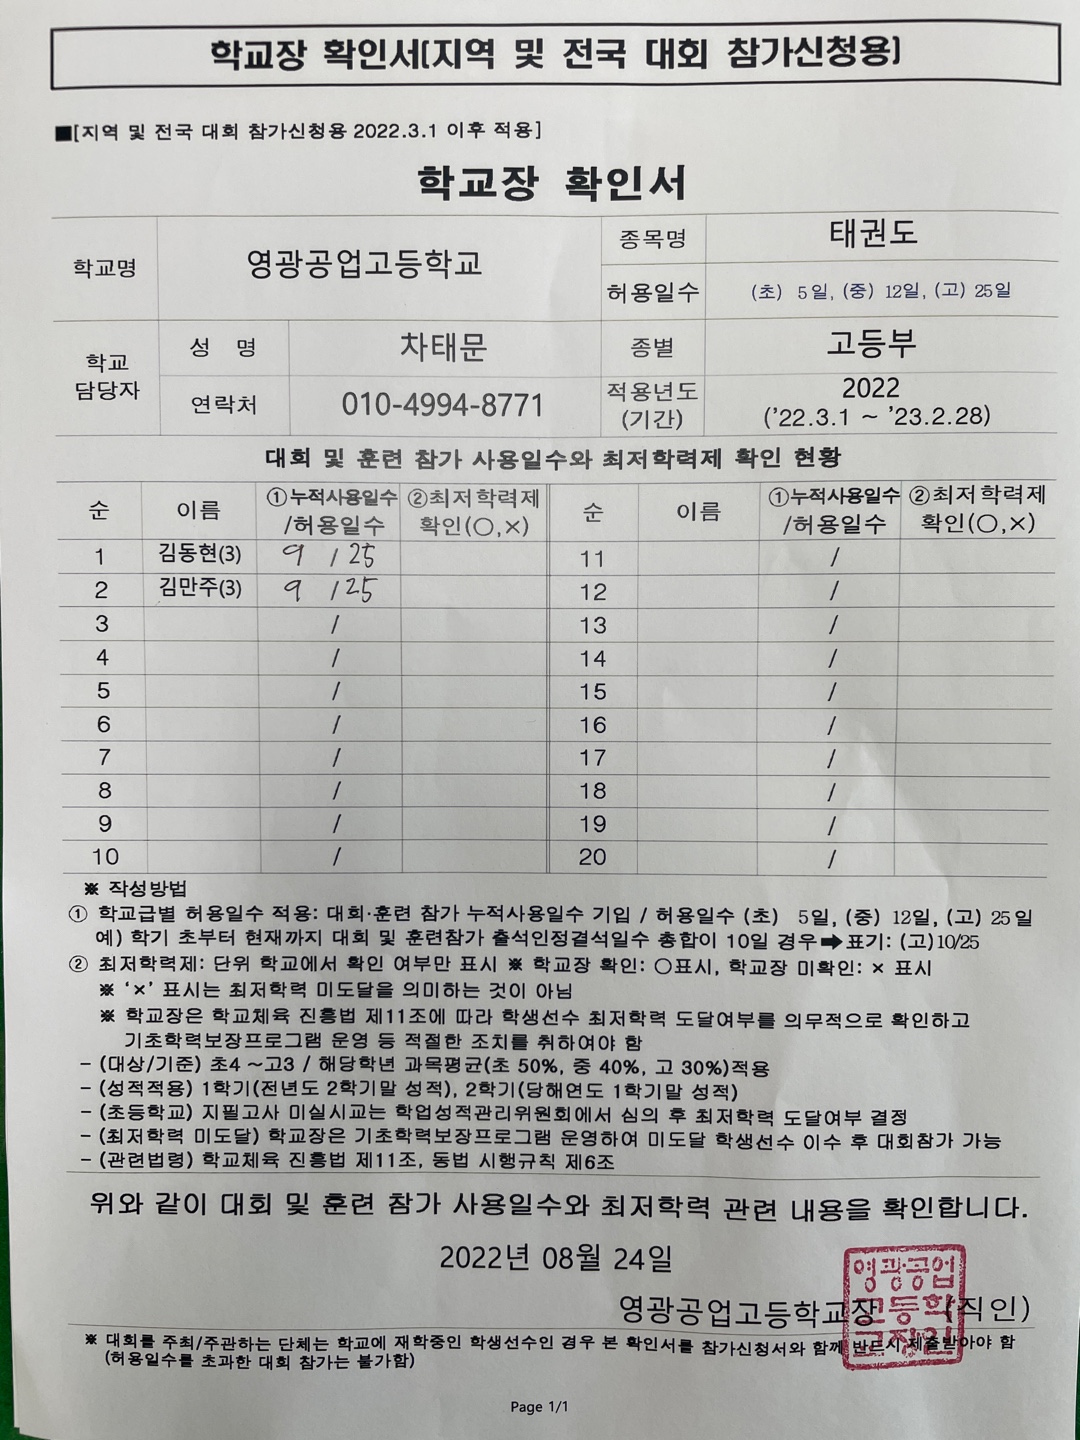 학교장 확인서[지역 및 전국 대회 참가신청용]
■[지역 및 전국 대회 참가신청용 2022.3.1 이후 적용]
학교장 확인서
학교명 영광공업고등학교 종목명 태권도
허용일수 (초) 5일, (중) 12일, (고) 25일
학교 담당자 성 명 차태문 종별 고등부
연락처 010-4994-8771 적용년도 (기간) 2022 ('22.3.1 ~ '23.2.28)
대회 및 훈련 참가 사용일수와 최저학력제 확인 현황
순 이름 ①누적사용일수 /허용일수 ②최저학력제 확인(○,×) 순 이름 ①누적사용일수 /허용일수 ②최저학력제 확인(○,×)
1 김동현(3) 9 / 25 11 /
2 김만주(3) 9 / 25 12 /
3 / 13 /
4 / 14 /
5 / 15 /
6 / 16 /
7 / 17 /
8 / 18 /
9 / 19 /
10 / 20 /
※ 작성방법
① 학교급별 허용일수 적용: 대회·훈련 참가 누적사용일수 기입 / 허용일수 (초) 5일, (중) 12일, (고) 25일
예) 학기 초부터 현재까지 대회 및 훈련참가 출석인정결석일수 총합이 10일 경우➡표기: (고)10/25
② 최저학력제: 단위 학교에서 확인 여부만 표시 ※ 학교장 확인: ○표시, 학교장 미확인: × 표시
※ '×' 표시는 최저학력 미도달을 의미하는 것이 아님
※ 학교장은 학교체육 진흥법 제11조에 따라 학생선수 최저학력 도달여부를 의무적으로 확인하고
기초학력보장프로그램 운영 등 적절한 조치를 취하여야 함
- (대상/기준) 초4 ~고3 / 해당학년 과목평균(초 50%, 중 40%, 고 30%)적용
- (성적적용) 1학기(전년도 2학기말 성적), 2학기(당해연도 1학기말 성적)
- (초등학교) 지필고사 미실시교는 학업성적관리위원회에서 심의 후 최저학력 도달여부 결정
- (최저학력 미도달) 학교장은 기초학력보장프로그램 운영하여 미도달 학생선수 이수 후 대회참가 가능
- (관련법령) 학교체육 진흥법 제11조, 동법 시행규칙 제6조
위와 같이 대회 및 훈련 참가 사용일수와 최저학력 관련 내용을 확인합니다.
2022년 08월 24일
영광공업고등학교장 (직인)
영광공업
고등학
교장인
※ 대회를 주최/주관하는 단체는 학교에 재학중인 학생선수인 경우 본 확인서를 참가신청서와 함께 반드시 제출받아야 함
(허용일수를 초과한 대회 참가는 불가함)
Page 1/1